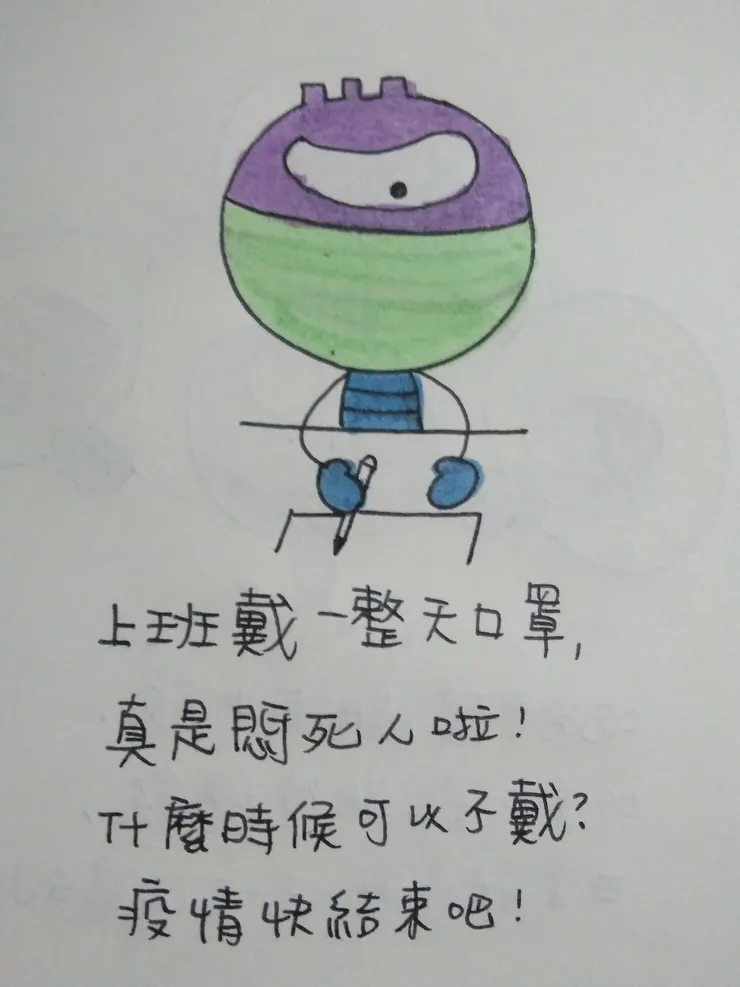 上班戴一整天口罩,
真是悶死人啦!
什麼時候可以不戴?
疫情快結束吧!